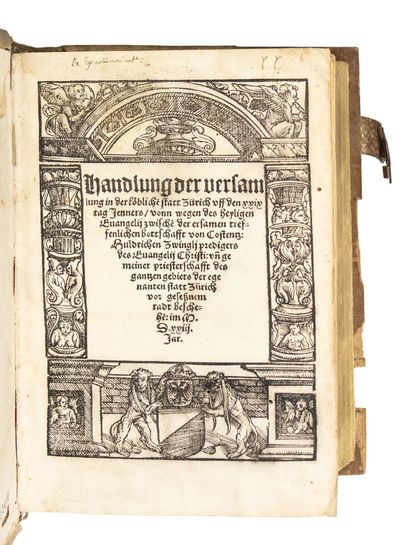 De excommunicate.
Handlung der versam
lung in der löbliche͂ statt Zürich vff den xxix
tag Jenners / vonn wegen des heyligen
Euangelij zwische͂ der ersamen tref-
fenlichen bottschafft von Costentz:
Huldrichen Zwinglij predigers
des Euangelij Christi: vn͂ ge
meiner priesterschafft des
gantzen gebiets der ege
nanten statt Zürich
vor geseßnem
radt besche-
he͂: im M.
D. xxiij.
Jar.